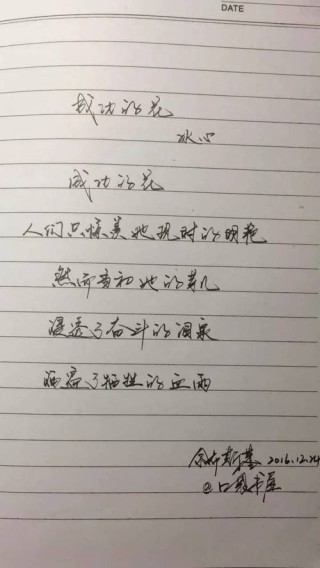 DATE
成功的花
冰心
成功的花
人们只惊羡她现时的明艳
然而当初她的芽儿
浸透了奋斗的泪泉
了牺牲的血雨
斯基 2016.12.24
@口 书屋